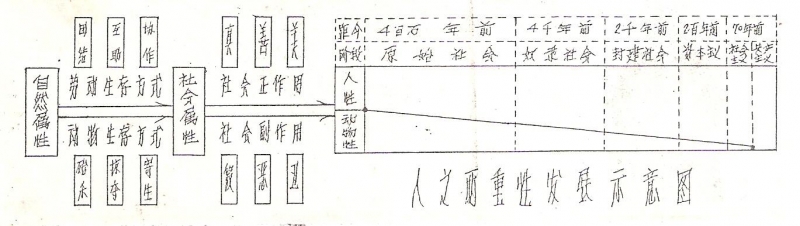 团结 互助 协作
真 善 美
距今 4百万年前 4千年前 2千年前 2百年前 70年前
阶段 原始社会 奴隶社会 封建社会 资本主义 社会主义 共产主义
自然属性
劳动生存方式
动物生存方式
社会属性
社会正作用
社会副作用
人性
动物性
掠夺 寄生
假 恶 丑
人之两重性发展示意图